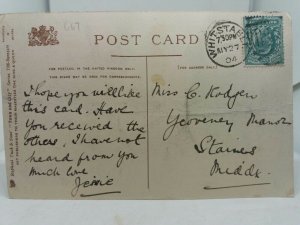 C67
POST CARD
FOR POSTAGE IN THE UNITED KINGDOM ONLY,
THIS SPACE MAY BE USED FOR CORRESPONDENCE.
(FOR ADDRESS ONLY.)
WHITSTABLE
7.30PM
MY 27
04
I hope you will like
this card. Have
you received the
others, I have not
heard from you
much love.
Jessie
Miss C. Rodgers
Yeoveney Manor
Staines
Middx.
Raphael Tuck & Sons' "Town and City" Series